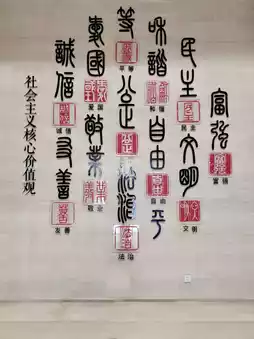 社会主义核心价值观
富強
富强
民主
民主
文明
文明
和諧
和谐
自由
自由
平
等
平等
公正
法治
法治
愛國
爱国
敬業
敬业
誠信
诚信
友善
友善